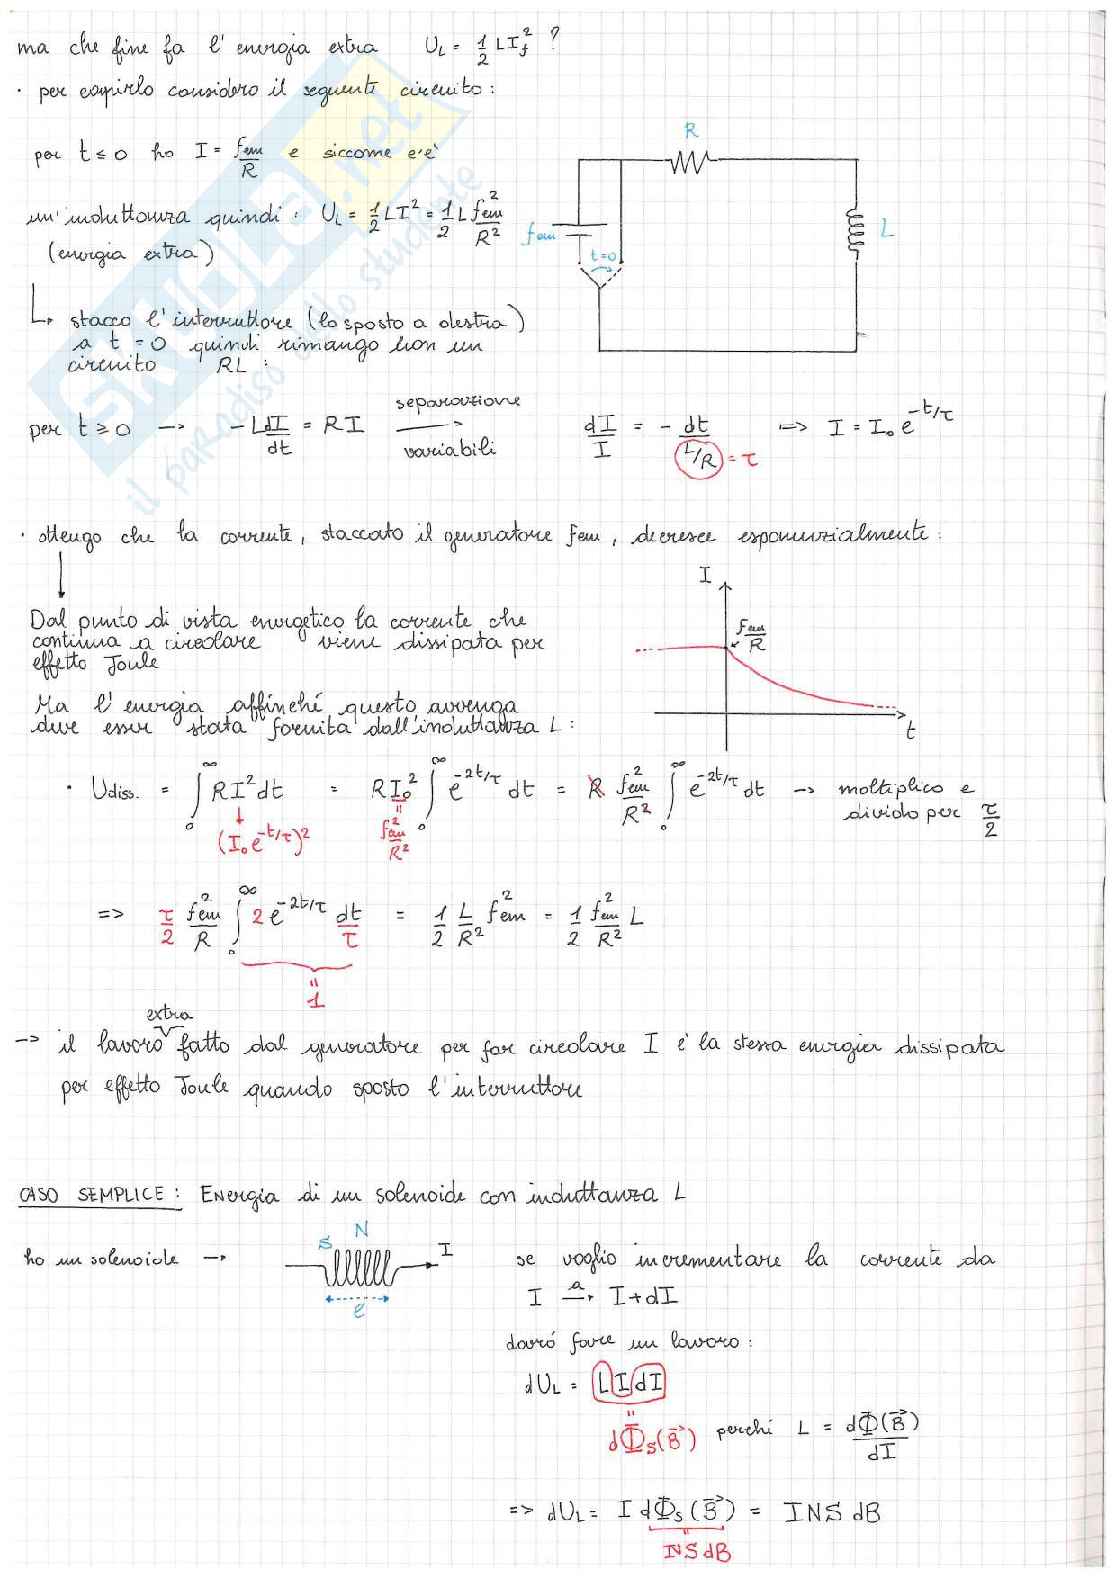 ma che fine fa l'energia extra U_L = 1/2 L I_f^2 ?
· per capirlo considero il seguente circuito:
per t ≤ 0 ho I = fem/R e siccome c'è
un'induttanza quindi: U_L = 1/2 L I^2 = 1/2 L fem^2/R^2
(energia extra)
R
fem
t=0
L
↳ stacco l'interruttore (lo sposto a destra)
a t = 0 quindi rimango con un
circuito RL:
per t ≥ 0 → -L dI/dt = RI
separazione
variabili
dI/I = - dt/(L/R) = τ → I = I₀ e^{-t/τ}
· ottengo che la corrente, staccato il generatore fem, decresce esponenzialmente:
Dal punto di vista energetico la corrente che
continua a circolare viene dissipata per
effetto Joule
I
fem/R
t
Ma l'energia affinché questo avvenga
deve esser stata fornita dall'induttanza L:
· Udiss. = ∫₀^∞ RI² dt = RI₀² ∫₀^∞ e^{-2t/τ} dt = R fem²/R² ∫₀^∞ e^{-2t/τ} dt → moltiplico e
divido per τ/2
(I₀ e^{-t/τ})²
" fem²/R²
=> τ/2 fem²/R ∫₀^∞ 2 e^{-2t/τ} dt/τ = 1/2 L/R² fem² = 1/2 fem²/R² L
" 1
extra
→ il lavoro fatto dal generatore per far circolare I è la stessa energia dissipata
per effetto Joule quando sposto l'interruttore
CASO SEMPLICE: Energia di un solenoide con induttanza L
ho un solenoide →
S N I
l
se voglio incrementare la corrente da
I a→ I+dI
dovrò fare un lavoro:
dU_L = L I dI
" dΦ_S(B⃗) perché L = dΦ(B⃗)/dI
=> dU_L = I dΦ_S(B⃗) = INS dB
" NS dB
SKUOLA.net
il paradiso dello studente